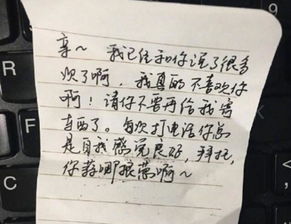 亲～ 我已经和你说了很多
次了啊，我真的不喜欢你
啊！请你不要再给我寄
东西了。每次打电话你总
是自我感觉良好，拜托，
你荐哪根葱啊～